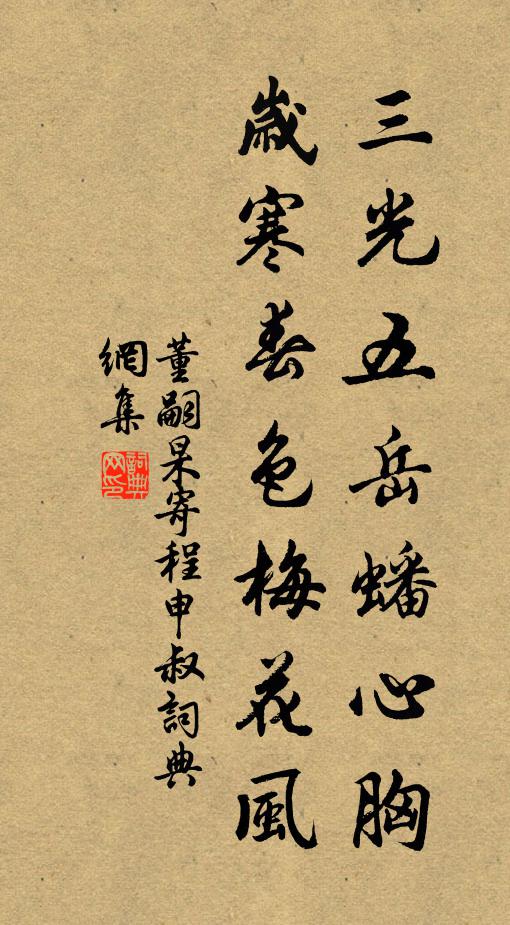 三光五岳蟠心胸
歲寒春色梅花風
董嗣杲寄程申叔詞典
網集
詞典網印